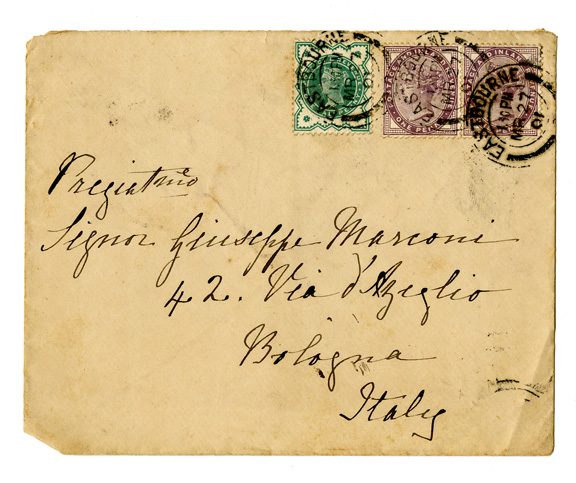 EASTBOURNE
EASTBOURNE
EASTBOURNE
7.30 PM
MR 27
01
Pregiatmo
Signor Giuseppe Marconi
42. Via d'Azeglio
Bologna
Italy